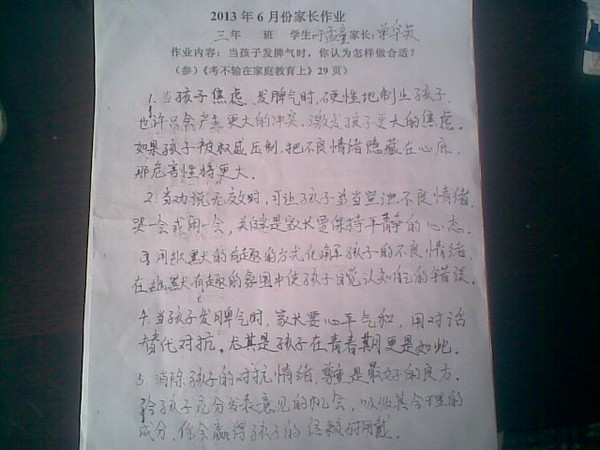 2013年6月份家长作业
三年 班 学生 孟童 家长:
作业内容：当孩子发脾气时，你认为怎样做合适？
（参）《考不输在家庭教育上》29页）
1. 当孩子焦虑、发脾气时，硬性地制止孩子，
也许只会产生更大的冲突，激发孩子更大的焦虑。
如果孩子被权威压制，把不良情绪隐藏在心底，
那危害性将更大。
2. 当劝说无效时，可让孩子适当宣泄不良情绪，
哭一会或闹一会，关键是家长要保持平静的心态。
3. 用幽默的有趣的方式化解孩子的不良情绪，
在幽默有趣的氛围中使孩子自觉认知自己的错误。
4. 当孩子发脾气时，家长要心平气和，用对话
替代对抗。尤其是孩子在青春期更是如此。
5. 消除孩子的对抗情绪，尊重是最好的良方。
给孩子充分发表意见的机会，吸收其合理的
成分，你会赢得孩子的信赖与拥戴。